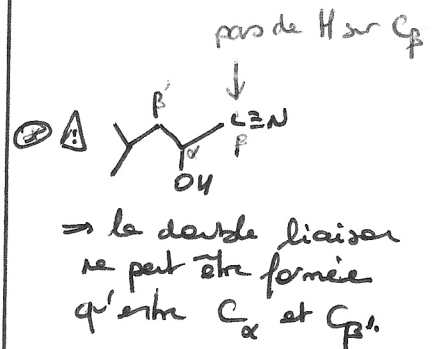 pas de H sur Cβ
β'
C≡N
α
β
OH
⇒ la double liaison
ne peut être formée
qu'entre Cα et Cβ'.